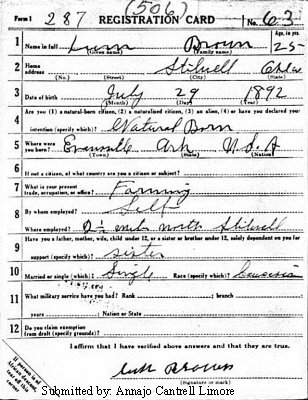 (506)
Form 1 287 REGISTRATION CARD No. 63
1 Name in full Lum Brown Age, in yrs. 25
(Given name) (Family name)
2 Home address Stilwell Okla
(No.) (Street) (City) (State)
3 Date of birth July 29 1892
(Month) (Day) (Year)
4 Are you (1) a natural-born citizen, (2) a naturalized citizen, (3) an alien, (4) or have you declared your
intention (specify which)? Natural Born
5 Where were you born? Ark U.S.A
(Town) (State) (Nation)
6 If not a citizen, of what country are you a citizen or subject?
7 What is your present trade, occupation, or office? Farming
8 By whom employed? Self
Where employed? 2½ miles north Stilwell
9 Have you a father, mother, wife, child under 12, or a sister or brother under 12, solely dependent on you for
support (specify which)? sister
10 Married or single (which)? Single Race (specify which)? Caucasian
11 What military service have you had? Rank ; branch
years ; Nation or State
12 Do you claim exemption
from draft (specify grounds)?
I affirm that I have verified above answers and that they are true.
Brown
(Signature or mark)
If person is of African descent, cut off this corner
Submitted by: Annajo Cantrell Limore